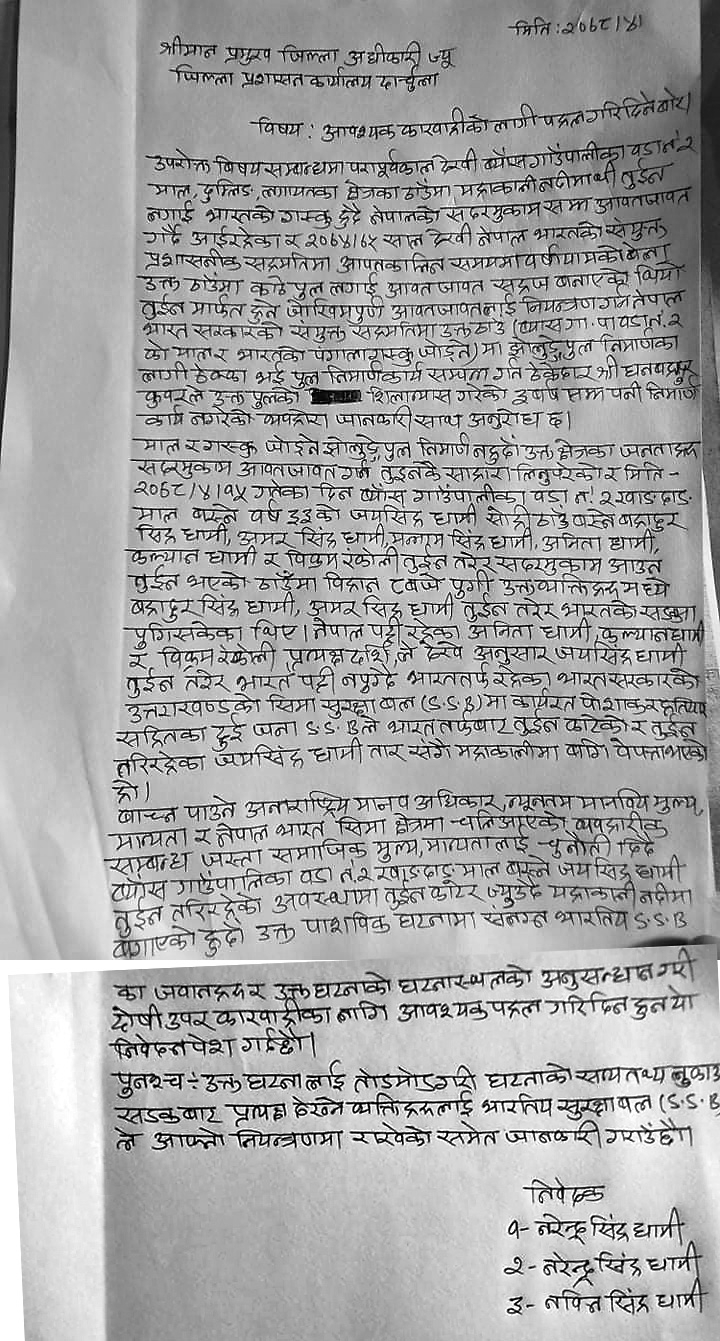 मिति : २०७८।४।
श्रीमान प्रमुख जिल्ला अधीकारी ज्यू
जिल्ला प्रशासन कार्यालय दार्चुला
विषय : आवश्यक कारवाहीको लागी पहल गरिदिने बारे।
उपरोक्त विषय सम्बन्धमा परापूर्वकाल देखी ब्याँस गाउँपालीका वडा नं. २
माल, दुम्लिङ, लगायतका क्षेत्रका ठाउँमा महाकाली नदीमाथी तुईन
लगाई भारतको गस्कु हुदै नेपालको सदरमुकाम सम्म आवतजावत
गर्दै आईरहेका र २०६४।६५ साल देखी नेपाल भारतको संयुक्त
प्रशासनीक सहमतिमा आपतकालिन समयमा वर्षायामको बेला
उक्त ठाउँमा काठे पुल लगाई आवत जावत सहज बनाएको थियो
तुईन मार्फत हुने जोखिमपुर्ण आवतजावतलाई नियन्त्रण गर्न नेपाल
भारत सरकारको संयुक्त सहमतिमा उक्त ठाउँ (ब्यास गा.पा वडा नं. २
को माल र भारतको पंगाला गस्कु जोड्ने) मा झोलुङ्गे पुल निर्माणका
लागी ठेक्का भई पुल निर्माण कार्य सम्पन्न गर्न ठेकेदार श्री धनबहादुर
कुवरले उक्त पुलको शिलान्यास गरेको ३ वर्ष सम्म पनी निर्माण
कार्य नगरेको व्यहोरा जानकारी साथ अनुरोध छ।
माल र गस्कु जोड्ने झोलुङ्गे पुल निर्माण नहुदाँ उक्त क्षेत्रका जनताहरु
सदरमुकाम आवतजावत गर्न तुइनकै साहारा लिनुपरेको र मिति -
२०७८।४।१५ गतेका दिन ब्याँस गाउँपालीका वडा नं. २ खाङदाङ
माल बस्ने वर्ष ३३ को जयसिंह धामी सोही ठाउँ बस्ने बहादुर
सिंह धामी, अमर सिंह धामी, सिंह धामी, अनिता धामी,
कल्यान धामी र विक्रम रंकोली तुईन तरेर सदरमुकाम आउन
तुईन भएको ठाउँमा विहान ८ बजे पुगी उक्त व्यक्तिहरु मध्ये
बहादुर सिंह धामी, अमर सिंह धामी तुईन तरेर भारतको सडकमा
पुगिसकेका थिए। नेपाल पट्टी रहेका अनिता धामी, कल्यान धामी
र विक्रम रंकोली प्रत्यक्षदर्शि, ले देखे अनुसार जयसिंह धामी
तुईन तरेर भारत पट्टी नपुग्दै भारततर्फ रहेका भारत सरकारको
उत्तराखण्डको सिमा सुरक्षा बल (S.S.B) मा कार्यरत पोशाक र हतियार
सहितका दुई जना S.S.B ले भारत तर्फबाट तुईन काटेको र तुईन
तरिरहेका जयसिंह धामी तार संगै महाकालीमा बगि वेपत्ता भएको
हो।
बाच्न पाउने अन्तराष्ट्रिय मानव अधिकार, न्यूनतम मानविय मुल्य,
मान्यता र नेपाल भारत सिमा क्षेत्रमा चलिआएको व्यवहारीक
सम्बन्ध जस्ता समाजिक मुल्य, मान्यतालाई चुनौती दिदै
ब्याँस गाउँपालिका वडा नं. २ खाङदाङ माल बस्ने जयसिंह धामी
तुईन तरिरहेको अवस्थामा तुईन काटेर ज्युउदै महाकाली नदीमा
बगाएको हुदाँ उक्त पाशविक घटनामा संलग्न भारतिय S.S.B
का जवानहरु र उक्त घटनाको घटनास्थलको अनुसन्धान गरी
दोषी उपर कारवाहीका लागि आवश्यक पहल गरिदिन हुन यो
निवेदन पेश गर्दछौ।
पुनश्च ÷ उक्त घटनालाई तोडमोड गरी घटनाको सत्यतथ्य लुकाउ
सडकबाट प्रत्यक्ष देख्ने व्यक्तिहरुलाई भारतिय सुरक्षा बल (S.S.B
ले आफ्नो नियन्त्रणमा राखेको समेत जानकारी गराउँछौ।
निवेदक
१- नरेन्द्र सिंह धामी
२- नरेन्द्र सिंह धामी
३- नविन सिंह धामी